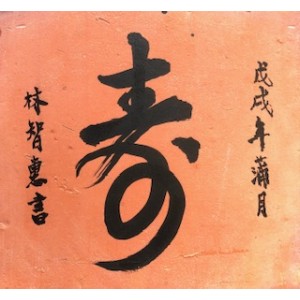 戊戌年蒲月
寿
林智惠書